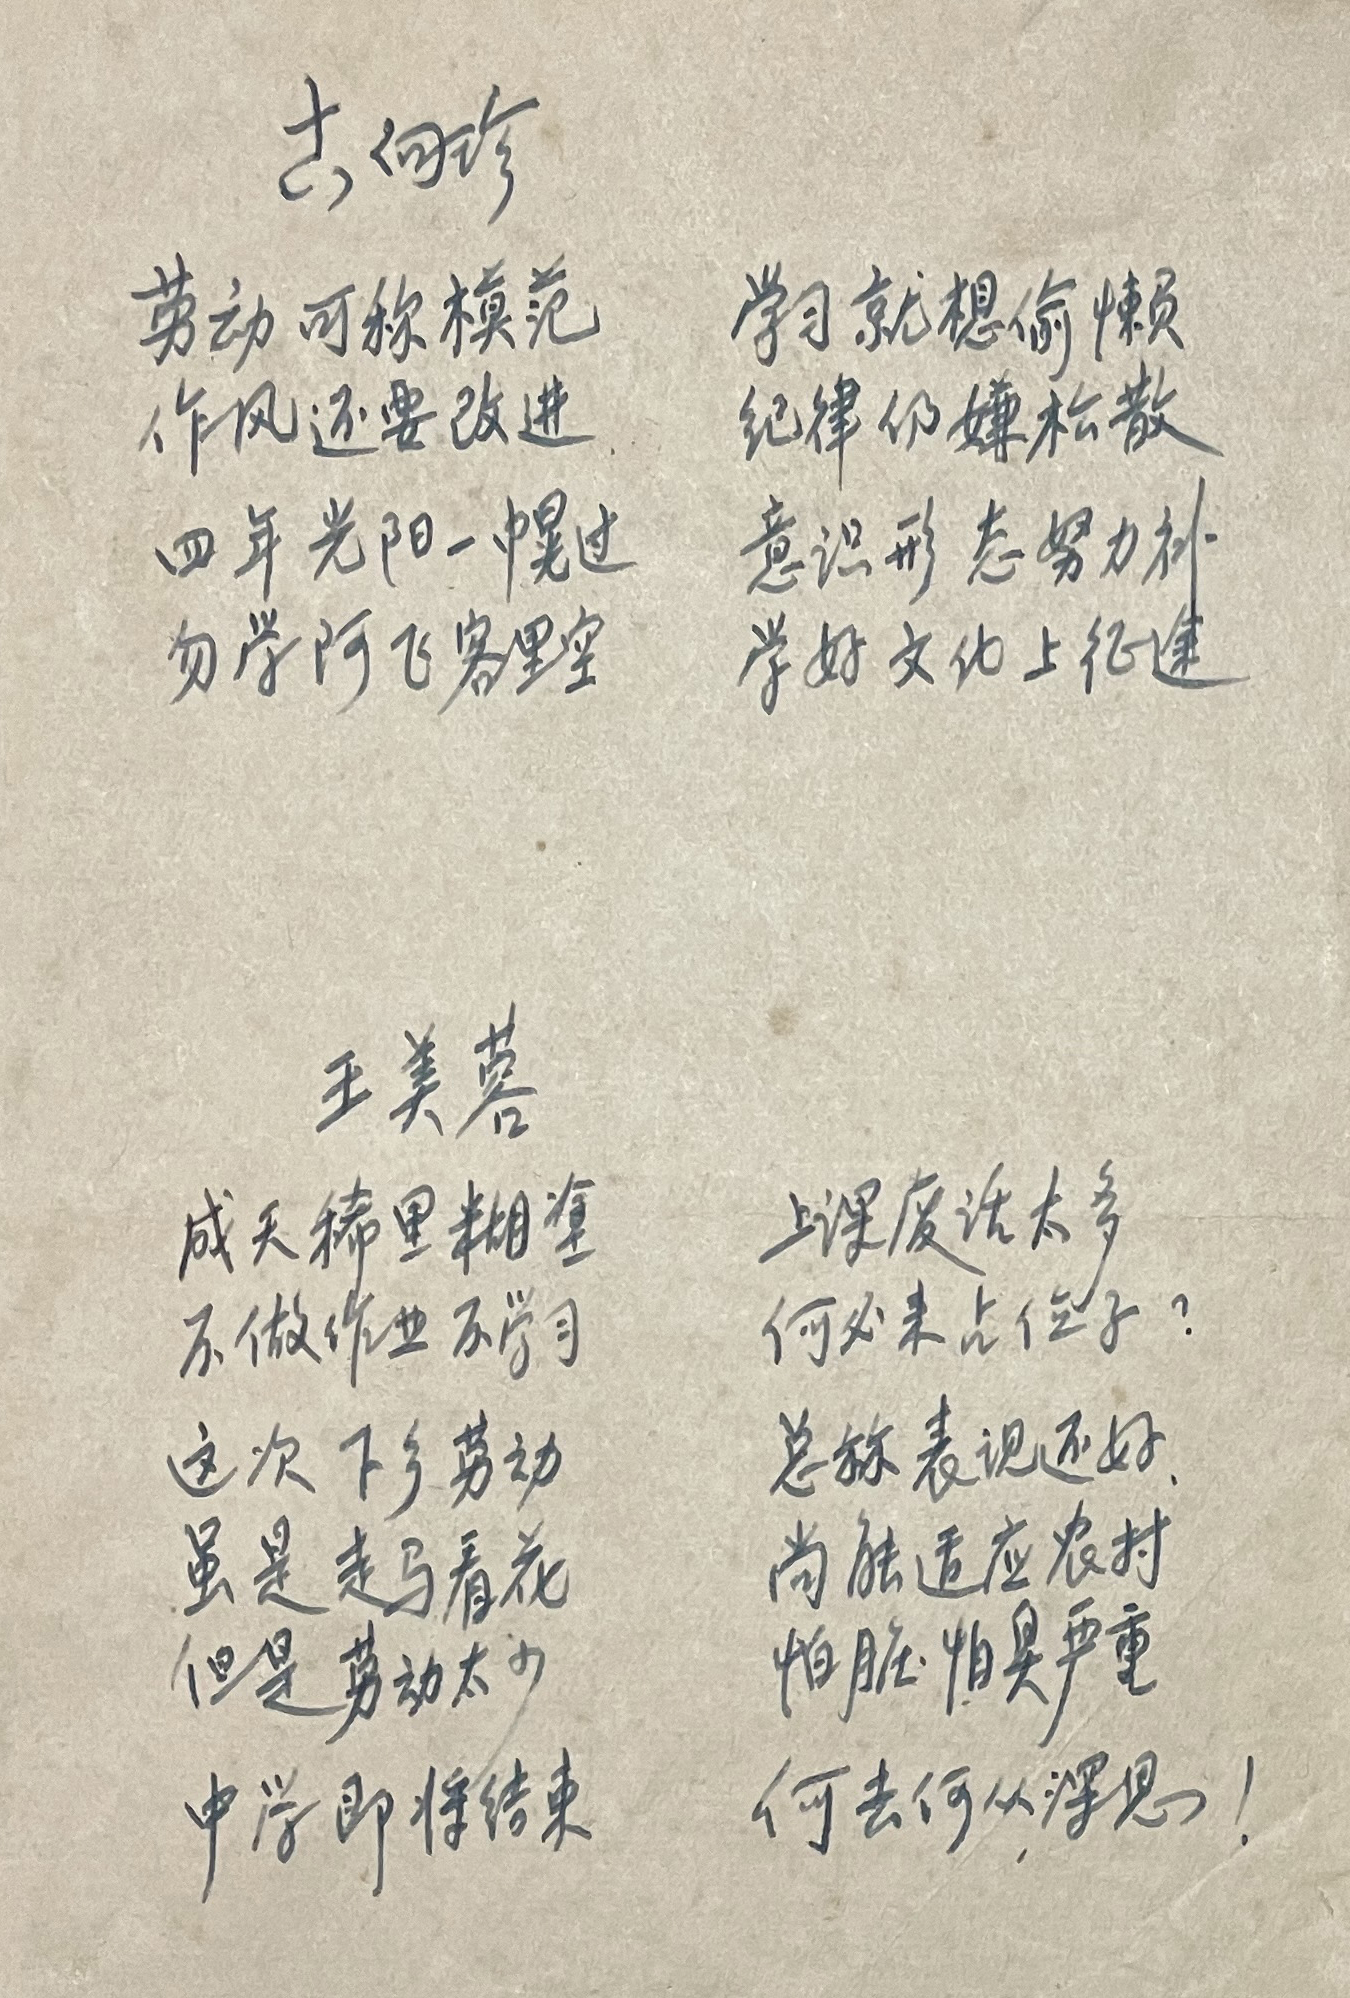 古向珍
劳动可称模范 学习就想偷懒
作风还要改进 纪律仍嫌松散
四年光阳一幌过 意识形态努力补
勿学阿飞客里空 学好文化上征途
王美蓉
成天稀里糊塗 上课废话太多
不做作业不学习 何必来占位子?
这次下乡劳动 总称表现还好
虽是走马看花 尚能适应农村
但是劳动太少 怕脏怕臭严重
中学即将结束 何去何从深思!